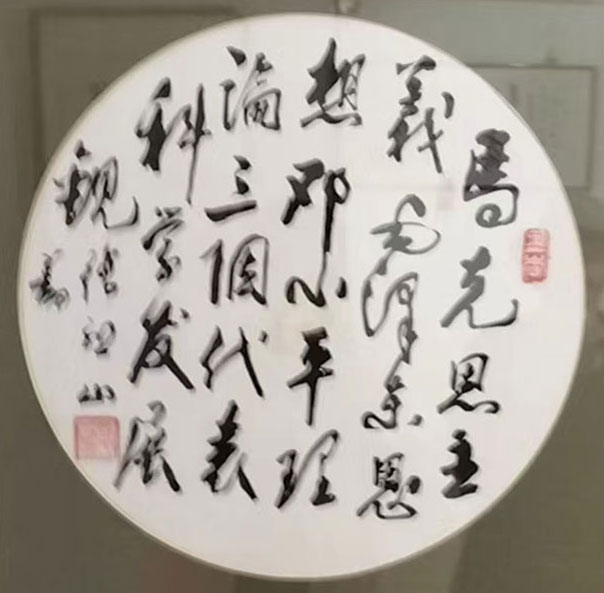 馬克思主
義毛澤东思
想邓小平理
論三個代表
科学发展
觀